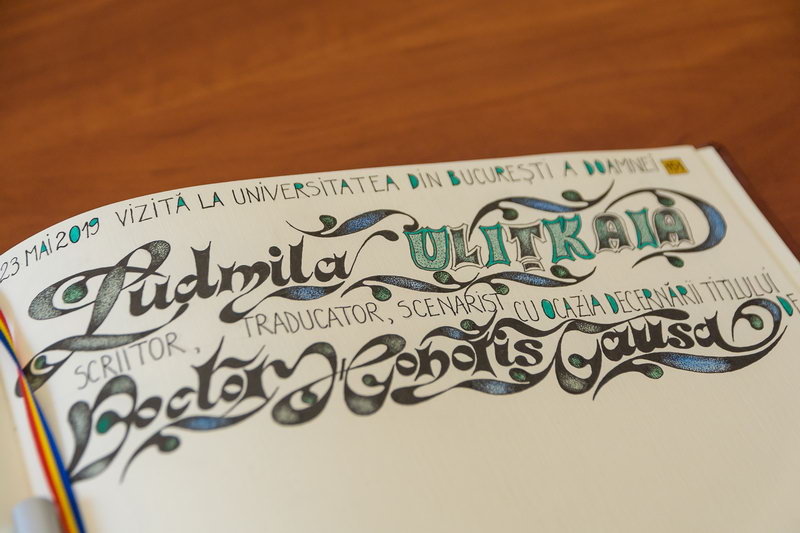 23 MAI 2019 VIZITĂ LA UNIVERSITATEA DIN BUCUREȘTI A DOAMNEI
Ludmila ULITKAIA
SCRIITOR, TRADUCATOR, SCENARIST CU OCAZIA DECERNĂRII TITLULUI DE
Doctor Honoris Causa